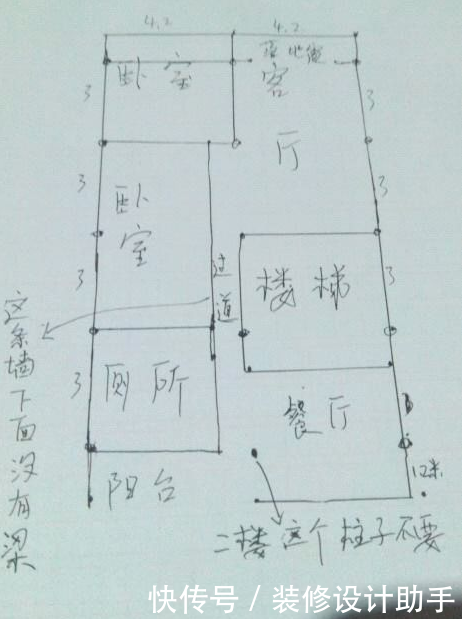 4.2
4.2
落地窗
卧室
客厅
3
3
3
3
3
3
3
卧室
过道
楼梯
这条墙下面没有梁
厕所
餐厅
阳台
二楼这个柱子不要
快传号/装修设计助手